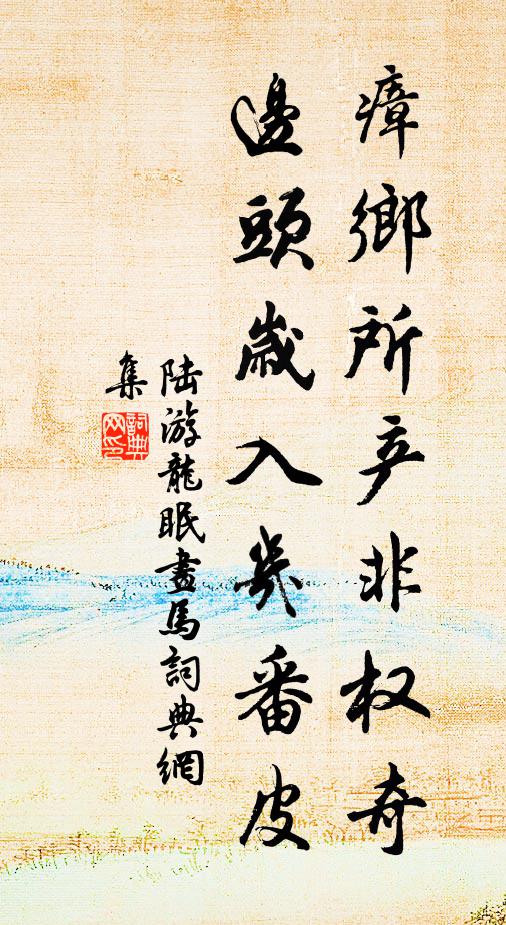 瘴鄉所产非权奇
邊頭歲入幾番皮
陆游龍眠畫馬詞典網
集
詞典
网印